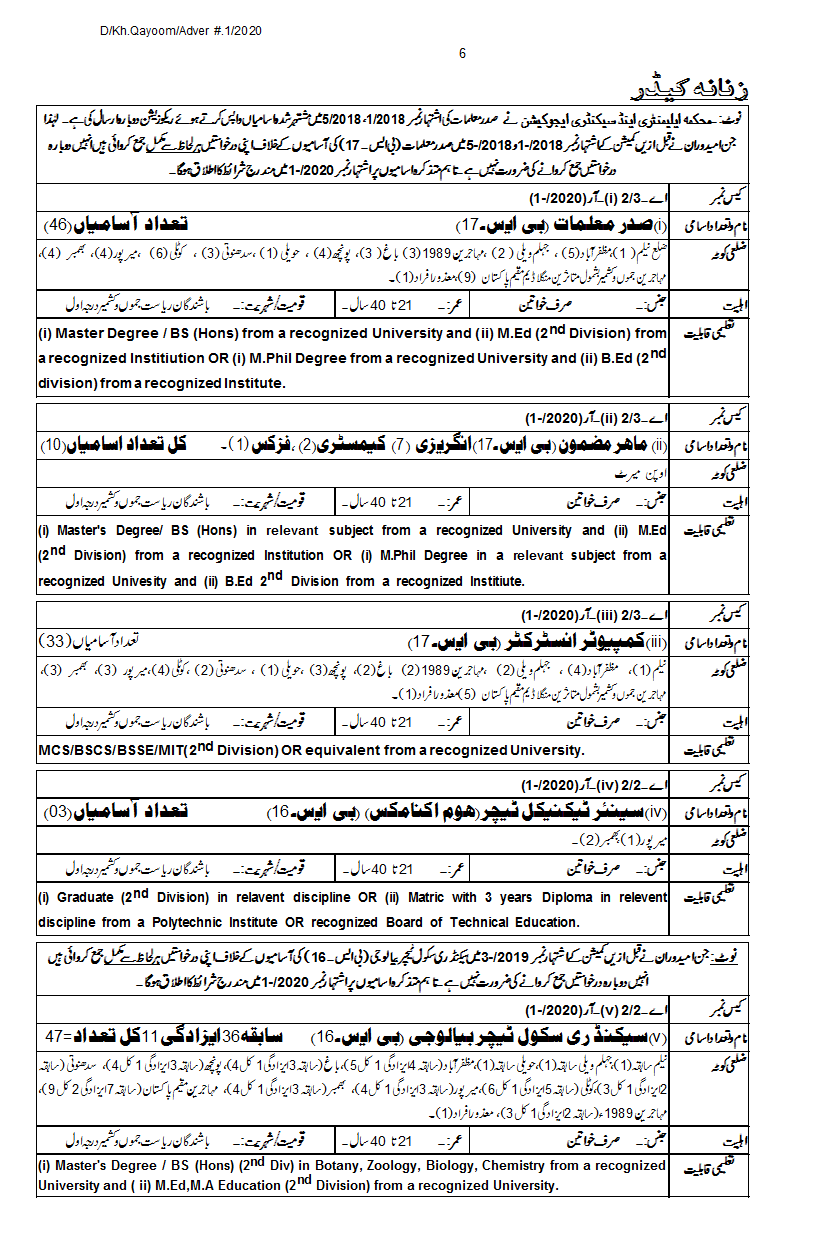 D/Kh.Qayoom/Adver #.1/2020
6
زنانہ کیڈر
نوٹ:۔ محکمہ ایلیمنٹری اینڈ سیکنڈری ایجوکیشن نے صدر معلمات کی اشتہار نمبر 1/2018، 5/2018 میں مشتہر شدہ اسامیاں واپس کرتے ہوئے ریکوزیشن دوبارہ ارسال کی ہے۔ لہٰذا
جن امیدوران نے قبل ازیں کمیشن کے اشتہار نمبر 2018/-1 و 2018/-5 میں صدر معلمات (بی ایس۔17) کی آسامیوں کے خلاف اپنی درخواستیں ہر لحاظ سے مکمل جمع کروائی ہیں انہیں دوبارہ
درخواستیں جمع کروانے کی ضرورت نہیں ہے۔ تاہم متذکرہ اسامیوں پر اشتہار نمبر 2020/-1 میں مندرج شرائط کا اطلاق ہوگا۔
کیس نمبر اے۔2/3 (i)۔آر (2020/-1)
نام و تعداد اسامی (i) صدر معلمات (بی ایس۔17) تعداد آسامیاں (46)
ضلعی کوٹہ ضلع نیلم (1)، مظفرآباد (5)، جہلم ویلی (2)، مہاجرین 1989 (3) باغ (3)، پونچھ (4)، حویلی (1)، سدھنوتی (3)، کوٹلی (6)، میر پور (4)، بھمبر (4)،
مہاجرین جموں و کشمیر بشمول متاثرین منگلا ڈیم مقیم پاکستان (9) معذور افراد (1)۔
اہلیت جنس:۔ صرف خواتین عمر:۔ 21 تا 40 سال۔ قومیت/شہریت:۔ باشندگان ریاست جموں و کشمیر درجہ اول
تعلیمی قابلیت (i) Master Degree / BS (Hons) from a recognized University and (ii) M.Ed (2nd Division) from
a recognized Institiution OR (i) M.Phil Degree from a recognized University and (ii) B.Ed (2nd
division) from a recognized Institute.
کیس نمبر اے۔2/3 (ii)۔آر (2020/-1)
نام و تعداد اسامی (ii) ماہر مضمون (بی ایس۔17) انگریزی (7) کیمسٹری (2)، فزکس (1)۔ کل تعداد اسامیاں (10)
ضلعی کوٹہ اوپن میرٹ
اہلیت جنس:۔ صرف خواتین عمر:۔ 21 تا 40 سال۔ قومیت/شہریت:۔ باشندگان ریاست جموں و کشمیر درجہ اول
تعلیمی قابلیت (i) Master's Degree/ BS (Hons) in relevant subject from a recognized University and (ii) M.Ed
(2nd Division) from a recognized Institution OR (i) M.Phil Degree in a relevant subject from a
recognized Univesity and (ii) B.Ed 2nd Division from a recognized Institiute.
کیس نمبر اے۔2/3 (iii)۔آر (2020/-1)
نام و تعداد اسامی (iii) کمپیوٹر انسٹرکٹر (بی ایس۔17) تعداد آسامیاں (33)
ضلعی کوٹہ نیلم (1)، مظفرآباد (4)، جہلم ویلی (2)، مہاجرین 1989 (2) باغ (2)، پونچھ (3)، حویلی (1)، سدھنوتی (2)، کوٹلی (4)، میر پور (3)، بھمبر (3)،
مہاجرین جموں و کشمیر بشمول متاثرین منگلا ڈیم مقیم پاکستان (5) معذور افراد (1)۔
اہلیت جنس:۔ صرف خواتین عمر:۔ 21 تا 40 سال۔ قومیت/شہریت:۔ باشندگان ریاست جموں و کشمیر درجہ اول
تعلیمی قابلیت MCS/BSCS/BSSE/MIT(2nd Division) OR equivalent from a recognized University.
کیس نمبر اے۔2/2 (iv)۔آر (2020/-1)
نام و تعداد اسامی (iv) سینئر ٹیکنیکل ٹیچر (ہوم اکنامکس) (بی ایس۔16) تعداد آسامیاں (03)
ضلعی کوٹہ میر پور (1) بھمبر (2)۔
اہلیت جنس:۔ صرف خواتین عمر:۔ 21 تا 40 سال۔ قومیت/شہریت:۔ باشندگان ریاست جموں و کشمیر درجہ اول
تعلیمی قابلیت (i) Graduate (2nd Division) in relavent discipline OR (ii) Matric with 3 years Diploma in relevent
discipline from a Polytechnic Institute OR recognized Board of Technical Education.
نوٹ:۔ جن امیدوران نے قبل ازیں کمیشن کے اشتہار نمبر 2019/-3 میں سیکنڈری سکول ٹیچر بیالوجی (بی ایس۔16) کی آسامیوں کے خلاف اپنی درخواستیں ہر لحاظ سے مکمل جمع کروائی ہیں
انہیں دوبارہ درخواستیں جمع کروانے کی ضرورت نہیں ہے۔ تاہم متذکرہ اسامیوں پر اشتہار نمبر 2020/-1 میں مندرج شرائط کا اطلاق ہوگا۔
کیس نمبر اے۔2/2 (v)۔آر (2020/-1)
نام و تعداد اسامی (v) سیکنڈری سکول ٹیچر بیالوجی (بی ایس۔16) سابقہ 36 ایزادگی 11 کل تعداد=47
ضلعی کوٹہ نیلم سابقہ (1)، جہلم ویلی سابقہ (1)، حویلی سابقہ (1)، مظفرآباد (سابقہ 4 ایزادگی 1 کل 5)، باغ (سابقہ 3 ایزادگی 1 کل 4)، پونچھ (سابقہ 3 ایزادگی 1 کل 4)، سدھنوتی (سابقہ
2 ایزادگی 1 کل 3)، کوٹلی (سابقہ 5 ایزادگی 1 کل 6)، میر پور (سابقہ 3 ایزادگی 1 کل 4)، بھمبر (سابقہ 3 ایزادگی 1 کل 4)، مہاجرین مقیم پاکستان (سابقہ 7 ایزادگی 2 کل 9)،
مہاجرین 1989ء (سابقہ 2 ایزادگی 1 کل 3)، معذور افراد (1)۔
اہلیت جنس:۔ صرف خواتین عمر:۔ 21 تا 40 سال۔ قومیت/شہریت:۔ باشندگان ریاست جموں و کشمیر درجہ اول
تعلیمی قابلیت (i) Master's Degree / BS (Hons) (2nd Div) in Botany, Zoology, Biology, Chemistry from a recognized
University and ( ii) M.Ed,M.A Education (2nd Division) from a recognized University.